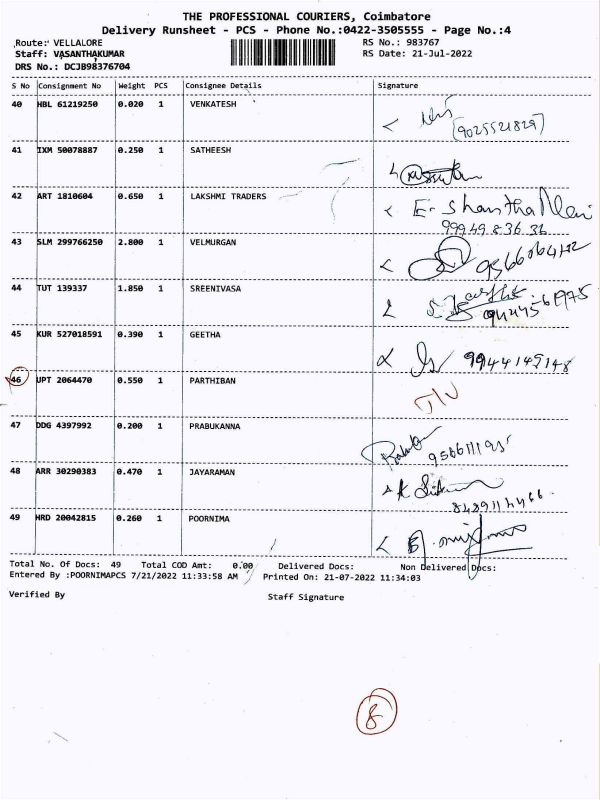 THE PROFESSIONAL COURIERS, Coimbatore
Delivery Runsheet - PCS - Phone No.:0422-3505555 - Page No.:4
Route: VELLALORE RS No.: 983767
Staff: VASANTHAKUMAR RS Date: 21-Jul-2022
DRS No.: DCJB98376704
S No Consignment No Weight PCS Consignee Details Signature
40 HBL 61219250 0.020 1 VENKATESH
(9025521829)
41 IXM 50078887 0.250 1 SATHEESH
42 ART 1810604 0.650 1 LAKSHMI TRADERS
99949 83636
43 SLM 299766250 2.800 1 VELMURGAN
44 TUT 139337 1.850 1 SREENIVASA
94445-61975
45 KUR 527018591 0.390 1 GEETHA
9944145148
46 UPT 2064470 0.550 1 PARTHIBAN
47 DDG 4397992 0.200 1 PRABUKANNA
48 ARR 30290383 0.470 1 JAYARAMAN
49 HRD 20042815 0.260 1 POORNIMA
Total No. Of Docs: 49 Total COD Amt: 0.00 Delivered Docs: Non Delivered Docs:
Entered By :POORNIMAPCS 7/21/2022 11:33:58 AM Printed On: 21-07-2022 11:34:03
Verified By Staff Signature
8